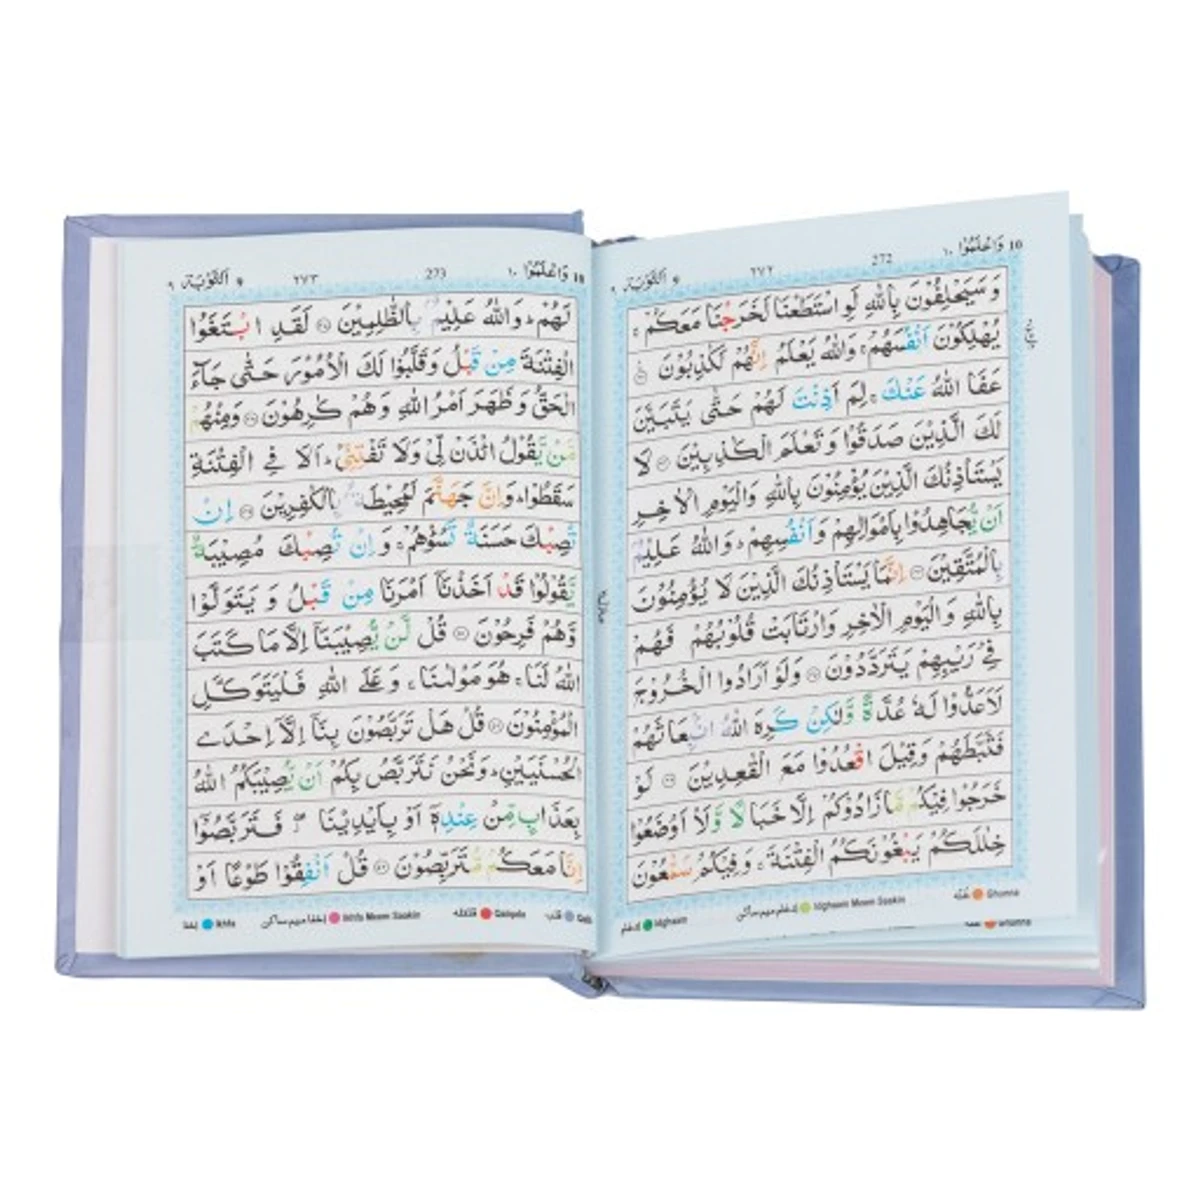 10 وَاعْلَمُوْٓا ١٠ 272 ٢٧٢ اَلتَّوْبَة ٩ 9
وَ سَيَحْلِفُوْنَ بِاللّٰهِ لَوِ اسْتَطَعْنَا لَخَرَجْنَا مَعَكُمْ ۚ
يُهْلِكُوْنَ اَنْفُسَهُمْ ۚ وَاللّٰهُ يَعْلَمُ اِنَّهُمْ لَكٰذِبُوْنَ ۝
عَفَا اللّٰهُ عَنْكَ ۚ لِمَ اَذِنْتَ لَهُمْ حَتّٰى يَتَبَيَّنَ
لَكَ الَّذِيْنَ صَدَقُوْا وَ تَعْلَمَ الْكٰذِبِيْنَ ۝ لَا
يَسْتَاْذِنُكَ الَّذِيْنَ يُؤْمِنُوْنَ بِاللّٰهِ وَالْيَوْمِ الْاٰخِرِ
اَنْ يُّجَاهِدُوْا بِاَمْوَالِهِمْ وَاَنْفُسِهِمْ ؕ وَاللّٰهُ عَلِيْمٌۢ
بِالْمُتَّقِيْنَ ۝ اِنَّمَا يَسْتَاْذِنُكَ الَّذِيْنَ لَا يُؤْمِنُوْنَ
بِاللّٰهِ وَ الْيَوْمِ الْاٰخِرِ وَارْتَابَتْ قُلُوْبُهُمْ فَهُمْ
فِيْ رَيْبِهِمْ يَتَرَدَّدُوْنَ ۝ وَلَوْ اَرَادُوا الْخُرُوْجَ
لَاَعَدُّوْا لَهٗ عُدَّةً وَّلٰكِنْ كَرِهَ اللّٰهُ انْۢبِعَاثَهُمْ
فَثَبَّطَهُمْ وَقِيْلَ اقْعُدُوْا مَعَ الْقٰعِدِيْنَ ۝ لَوْ
خَرَجُوْا فِيْكُمْ مَّا زَادُوْكُمْ اِلَّا خَبَالًا وَّلَا۟اَوْضَعُوْا
خِلٰلَكُمْ يَبْغُوْنَكُمُ الْفِتْنَةَ ۚ وَفِيْكُمْ سَمّٰعُوْنَ
غُنّه Ghunna إدغام ميم ساكن Idghaam Meem Saakin إدغام Idghaam
Ghunna
10 وَاعْلَمُوْٓا ١٠ 273 ٢٧٣ اَلتَّوْبَة ٩ 9
لَهُمْ ؕ وَاللّٰهُ عَلِيْمٌۢ بِالظّٰلِمِيْنَ ۝ لَقَدِ ابْتَغَوُا
الْفِتْنَةَ مِنْ قَبْلُ وَقَلَّبُوْا لَكَ الْاُمُوْرَ حَتّٰى جَآءَ
الْحَقُّ وَ ظَهَرَ اَمْرُ اللّٰهِ وَهُمْ كٰرِهُوْنَ ۝ وَمِنْهُمْ
مَّنْ يَّقُوْلُ ائْذَنْ لِّيْ وَلَا تَفْتِنِّيْ ؕ اَلَا فِي الْفِتْنَةِ
سَقَطُوْا ؕ وَاِنَّ جَهَنَّمَ لَمُحِيْطَةٌۢ بِالْكٰفِرِيْنَ ۝ اِنْ
تُصِبْكَ حَسَنَةٌ تَسُؤْهُمْ ۚ وَ اِنْ تُصِبْكَ مُصِيْبَةٌ
يَّقُوْلُوْا قَدْ اَخَذْنَاۤ اَمْرَنَا مِنْ قَبْلُ وَ يَتَوَلَّوْا
وَّهُمْ فَرِحُوْنَ ۝ قُلْ لَّنْ يُّصِيْبَنَاۤ اِلَّا مَا كَتَبَ
اللّٰهُ لَنَا ۚ هُوَ مَوْلٰىنَا ۚ وَ عَلَى اللّٰهِ فَلْيَتَوَكَّلِ
الْمُؤْمِنُوْنَ ۝ قُلْ هَلْ تَرَبَّصُوْنَ بِنَاۤ اِلَّاۤ اِحْدَى
الْحُسْنَيَيْنِ ؕ وَنَحْنُ نَتَرَبَّصُ بِكُمْ اَنْ يُّصِيْبَكُمُ اللّٰهُ
بِعَذَابٍ مِّنْ عِنْدِهٖۤ اَوْ بِاَيْدِيْنَا ۖ فَتَرَبَّصُوْۤا
اِنَّا مَعَكُمْ مُّتَرَبِّصُوْنَ ۝ قُلْ اَنْفِقُوْا طَوْعًا اَوْ
قلب Qalb قلقله Qalqala إخفا ميم ساكن Ikhfa Meem Saakin إخفا Ikhfa